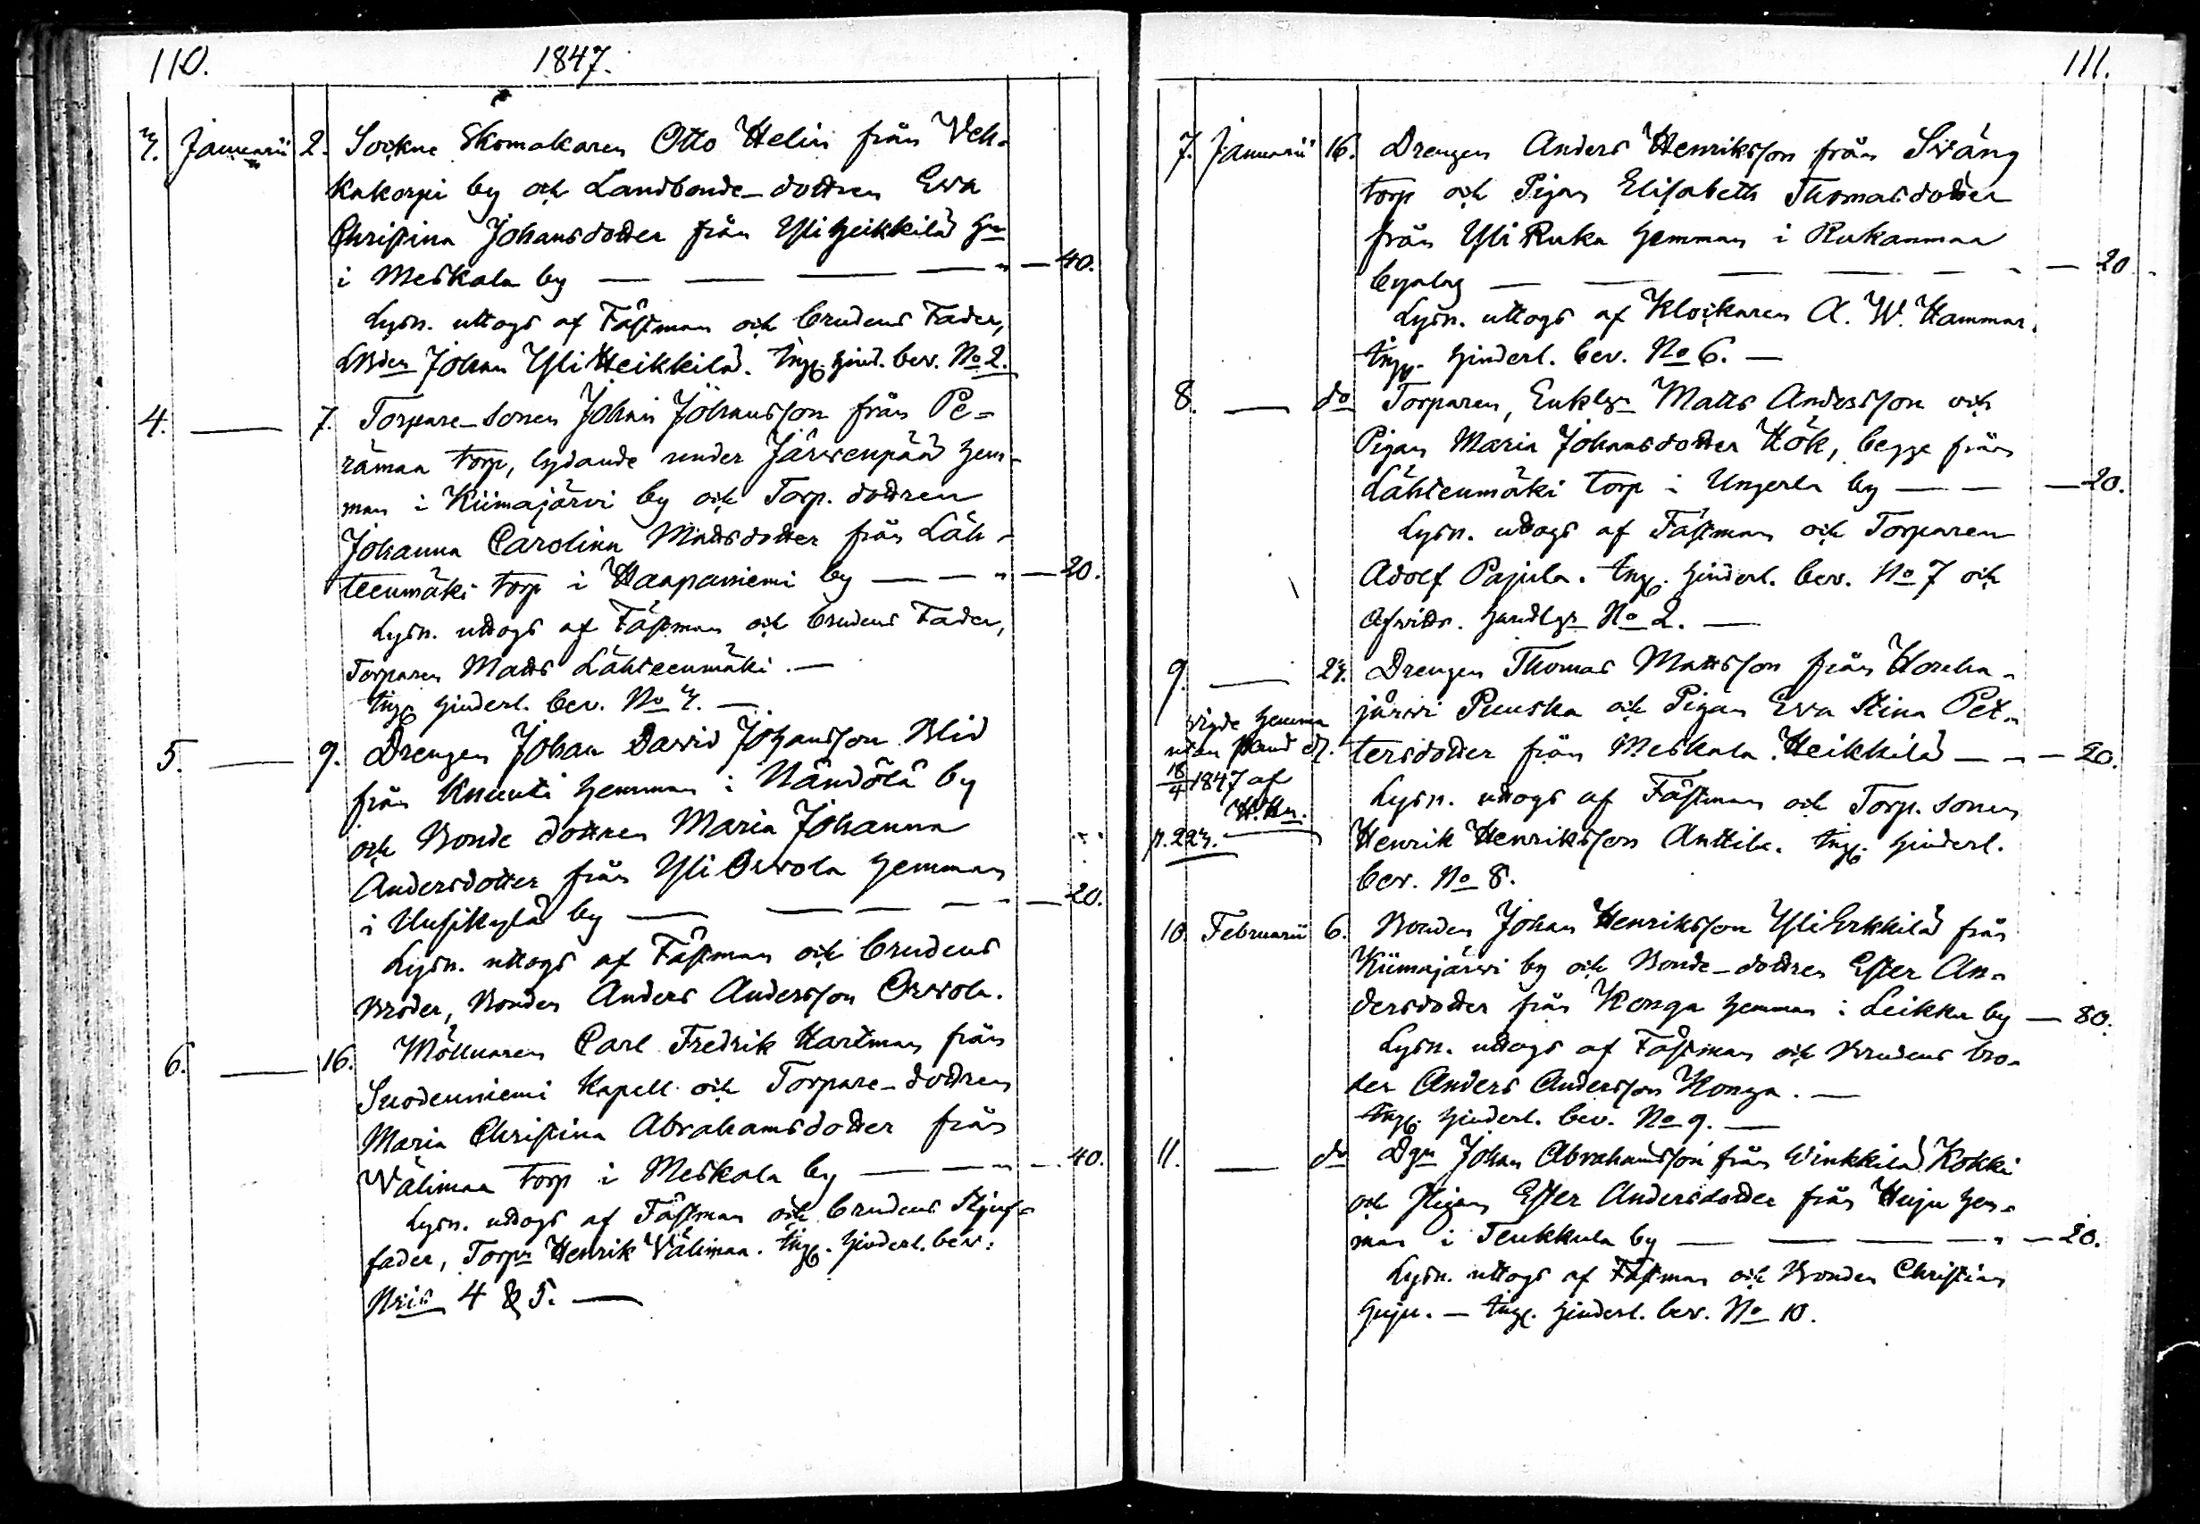 110.
1847.
3. Januarii 2. Sockne Skomakaren Otto Helin från Veh-
kakorpi by och Landbonde-dottren Eva
Christina Johansdotter från Yli Heikkilä Hn
i Meskala by — — — — " — 40.
Lysn. uttogs af Fästman och brudens Fader,
LBden Johan Yli Heikkilä. Ing. Hind. bev. No 2.
4. — 7. Torpare-Sonen Johan Johansson från Pe-
rämaa torp, lydande under Järvenpää Hem-
man i Kiimajärvi by och Torp. dottren
Johanna Carolina Mattsdotter från Läh-
teenmäki torp i Haapaniemi by — — " — 20.
Lysn. uttogs af Fästman och brudens Fader,
Torparen Matts Lähteenmäki. —
Ing. Hinderl. bev. No 3. —
5. — 9. Drengen Johan David Johansson Blid
från Knuuti Hemman i Nändölä by
och Bonde dottren Maria Johanna
Andersdotter från Yli Orvola Hemman
i Uusikylä by — — — — " — 20.
Lysn. uttogs af Fästman och brudens
Broder, Bonden Anders Andersson Orvola.
6. — 16. Möllnaren Carl Fredrik Hartman från
Suodenniemi Kapell och Torpare-dottren
Maria Christina Abrahamsdotter från
Välimaa torp i Meskala by — — " — 40.
Lysn. uttogs af Fästman och brudens Styuf-
fader, Torpn Henrik Välimaa. Ing. Hinderl. bev:
Nris 4 & 5. —
111.
7. Januarii 16. Drengen Anders Henriksson från Sväng
torp och Pigan Elisabeth Thomasdotter
från Yli Ruka Hemman i Rukanmaa
byalag — — — — — " — 20
Lysn. uttogs af Klockaren A. W. Hammar.
Ing. Hinderl. bev. No 6. —
8. — do Torparen, Enklgn Matts Andersson och
Pigan Maria Johansdotter Hök, begge från
Lähteenmäki torp i Ungerla by — — — 20.
Lysn. uttogs af Fästman och Torparen
Adolf Pajula. Ing. Hinderl. bev. No 7 och
Afvittr. Handlgr No 2. —
9. — 23. Drengen Thomas Mattsson från Houha-
järvi Punska och Pigan Eva Stina Pet-
tersdotter från Meskala Heikkilä — " — 20.
Lysn. uttogs af Fästman och Torp. Sonen
Henrik Henriksson Anttila. Ing. Hinderl.
bev. No 8.
vigde hemma
utan
18/4 1847 af
H. Hn.
p. 223.
10. Februarii 6. Bonden Johan Henriksson Yli Erkkilä från
Kiimajärvi by och Bonde-dottren Ester An-
dersdotter från Konga Hemman i Leikku by — 80.
Lysn. uttogs af Fästman och Brudens bro-
der Anders Andersson Konga. —
Ing. Hinderl. bev. No 9. —
11. — do Dgn Johan Abrahamsson från Winkkilä Kokki
och Pigan Ester Andersdotter från Huju Hem-
man i Teukkula by — — — — " — 20.
Lysn. uttogs af Fästman och Bonden Christian
Huju. — Ing. Hinderl. bev. No 10.